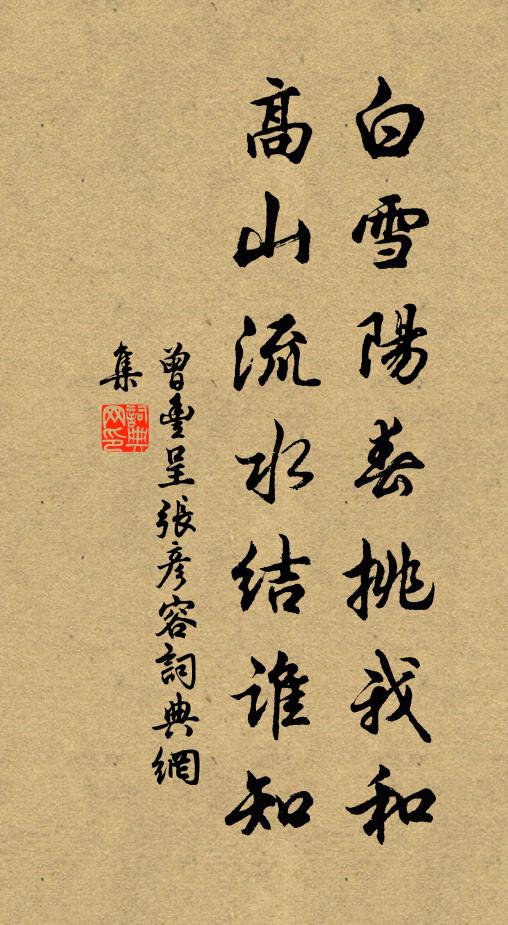 白雪陽春挑我和
高山流水結誰知
曾豐呈張彥容詞典網
集
詞典
网印